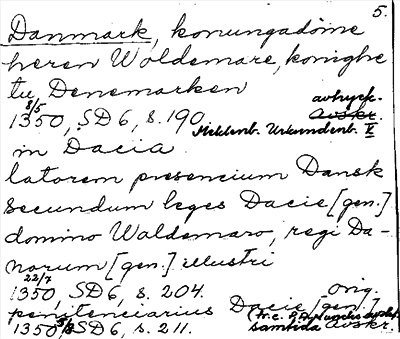 5.
Danmark, konungadöme
heren Woldemare, konighe
tu Denemarken
8/5 avtryck.
1350, SD 6, s. 190. Avskr.
Meklenb. Urkundenb. X
in Dacia
latorem presencium Dansk
secundum leges Dacie [gen.]
domino Waldemaro, regi Da-
norum [gen.] illustri
22/7 orig.
1350, SD 6, s. 204.
penitenciarius Dacie [gen.]
1350 SD 6, s. 211. samtida Avskr.